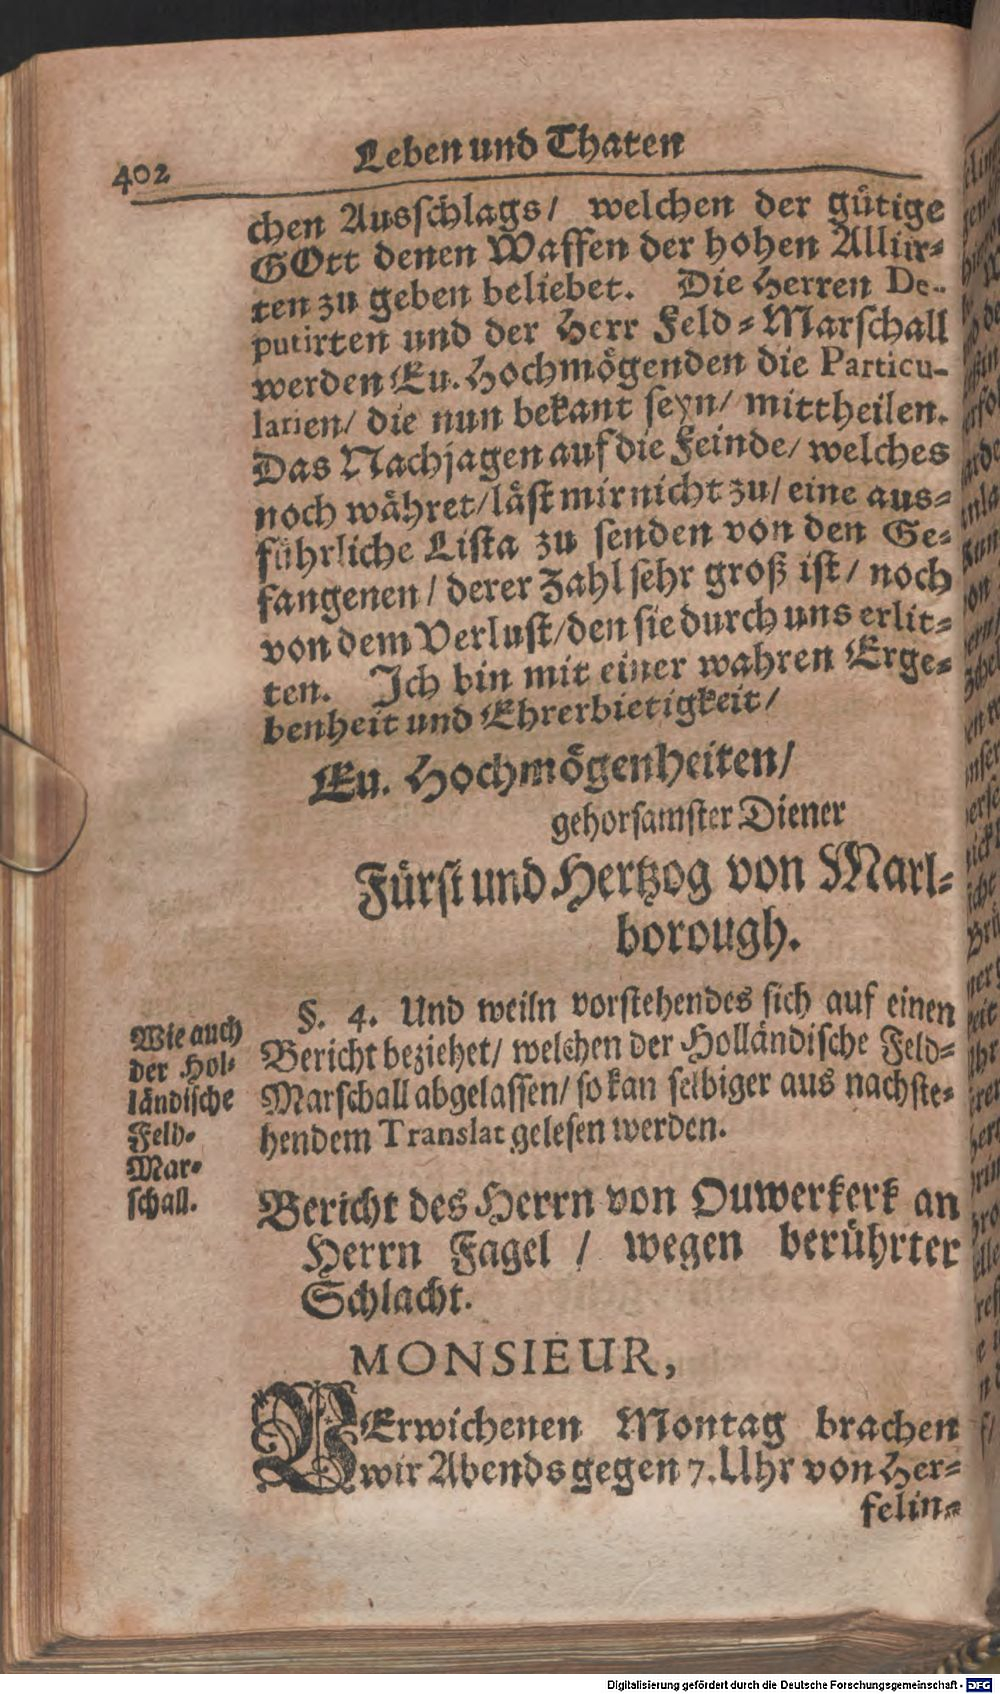 402 Leben und Thaten
chen Ausschlags/ welchen der gütige
GOtt denen Waffen der hohen Alliir-
ten zu geben beliebet. Die Herren De-
putirten und der Herr Feld-Marschall
werden Eu. Hochmögenden die Particu-
larien/ die nun bekant seyn/ mittheilen.
Das Nachjagen auf die Feinde/ welches
noch währet/ läst mir nicht zu/ eine aus-
führliche Lista zu senden von den Ge-
fangenen/ derer Zahl sehr groß ist/ noch
von dem Verlust/ den sie durch uns erlit-
ten. Ich bin mit einer wahren Erge-
benheit und Ehrerbietigkeit/
Eu. Hochmögenheiten/
gehorsamster Diener
Fürst und Hertzog von Marl-
borough.
Wie auch
der Hol-
ländische
Feld-
Mar-
schall.
§. 4. Und weiln vorstehendes sich auf einen
Bericht beziehet/ welchen der Holländische Feld-
Marschall abgelassen/ so kan selbiger aus nachste-
hendem Translat gelesen werden.
Bericht des Herrn von Ouwerkerk an
Herrn Fagel / wegen berührter
Schlacht.
MONSIEUR,
VErwichenen Montag brachen
wir Abends gegen 7. Uhr von Her-
felin-
Digitalisierung gefördert durch die Deutsche Forschungsgemeinschaft - DFG